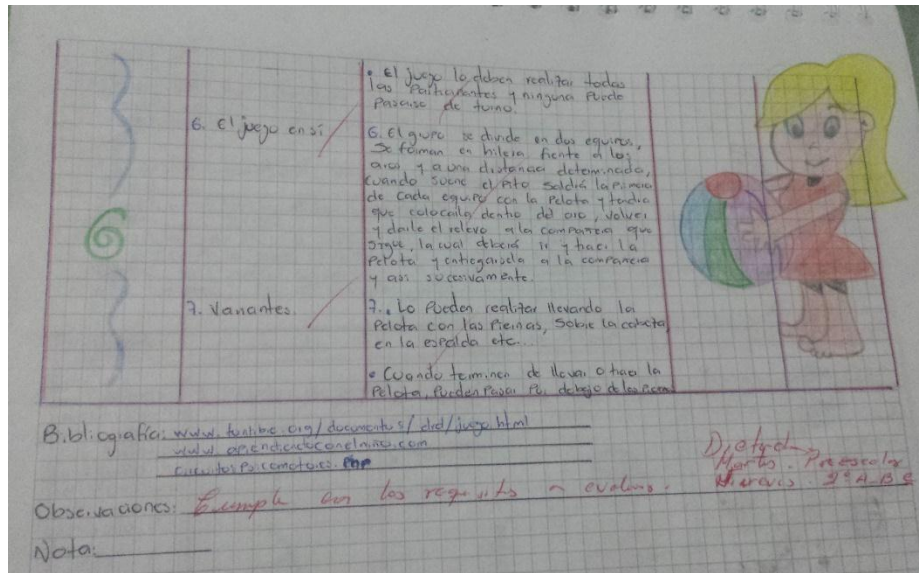 • El juego lo deben realizar todas
las Participantes y ninguna Puede
Pasarse de turno.
6. El juego en sí
6. El grupo se divide en dos equipos,
Se forman en hilera frente a los
aros, y a una distancia determinada,
Cuando suene el Pito Saldrá la Primera
de Cada equipo con la Pelota y tendrá
que colocarla dentro del aro, volver
y darle el relevo a la compañera que
Sigue, la cual deberá ir y traer la
Pelota y entregársela a la compañera
y así sucesivamente.
6
7. Variantes.
7.. Lo Pueden realizar llevando la
Pelota con las Piernas, Sobre la cabeza
en la espalda etc...
• Cuando terminen de llevar o traer la
Pelota, Pueden Pasar Por debajo de las
Bibliografía: www.funlibre.org/documentos/
juego.html
www.aprendiendoconelniño.com
php
Observaciones: Cumple con los requisitos a evaluar.
Preescolar
Nota: